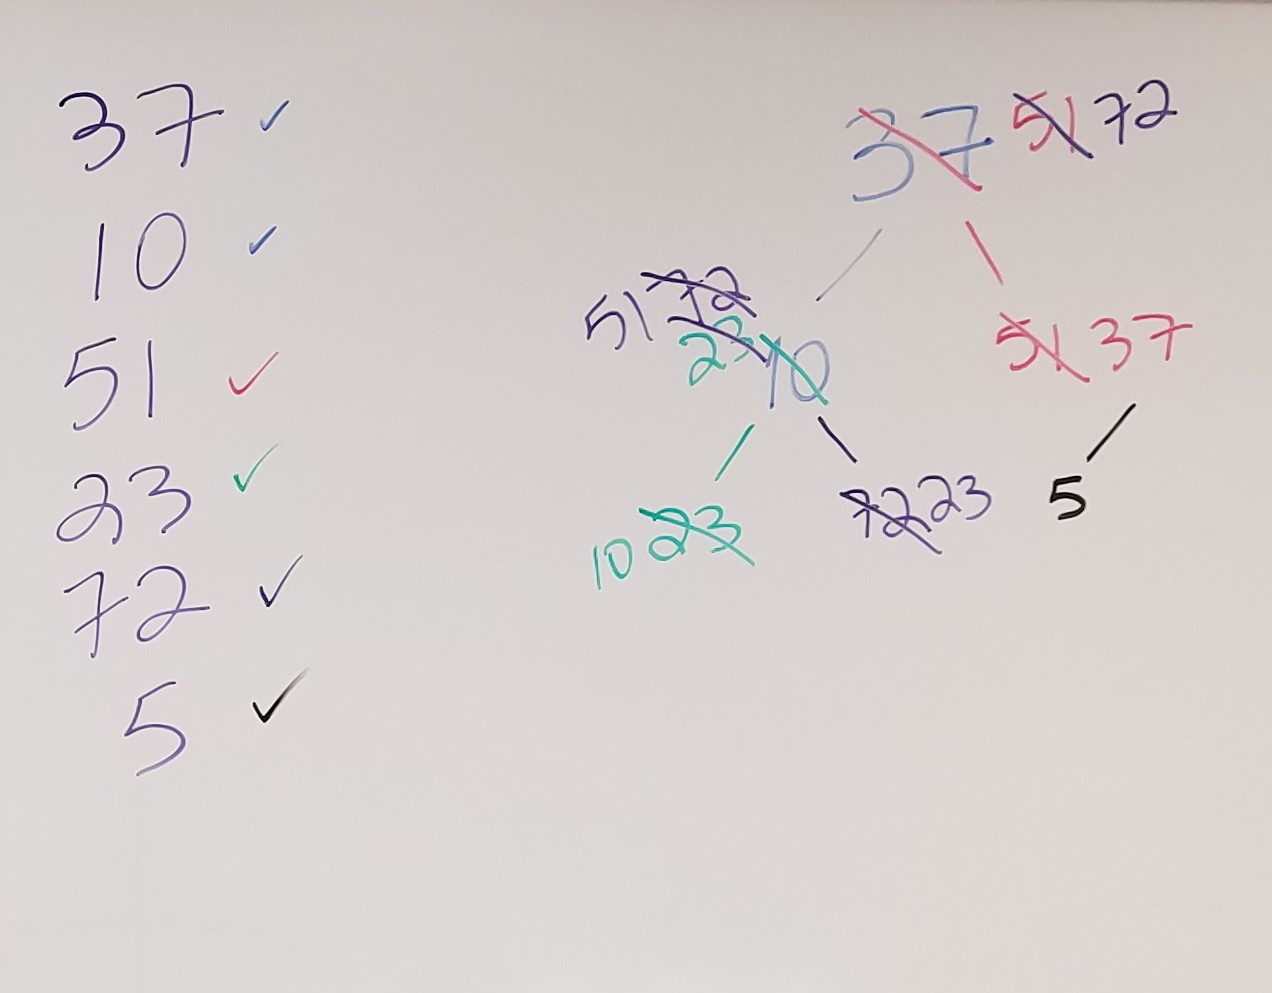 37 ✓
10 ✓
51 ✓
23 ✓
72 ✓
5 ✓
37 51 72
51 72
23 10
51 37
10 23
72 23
5